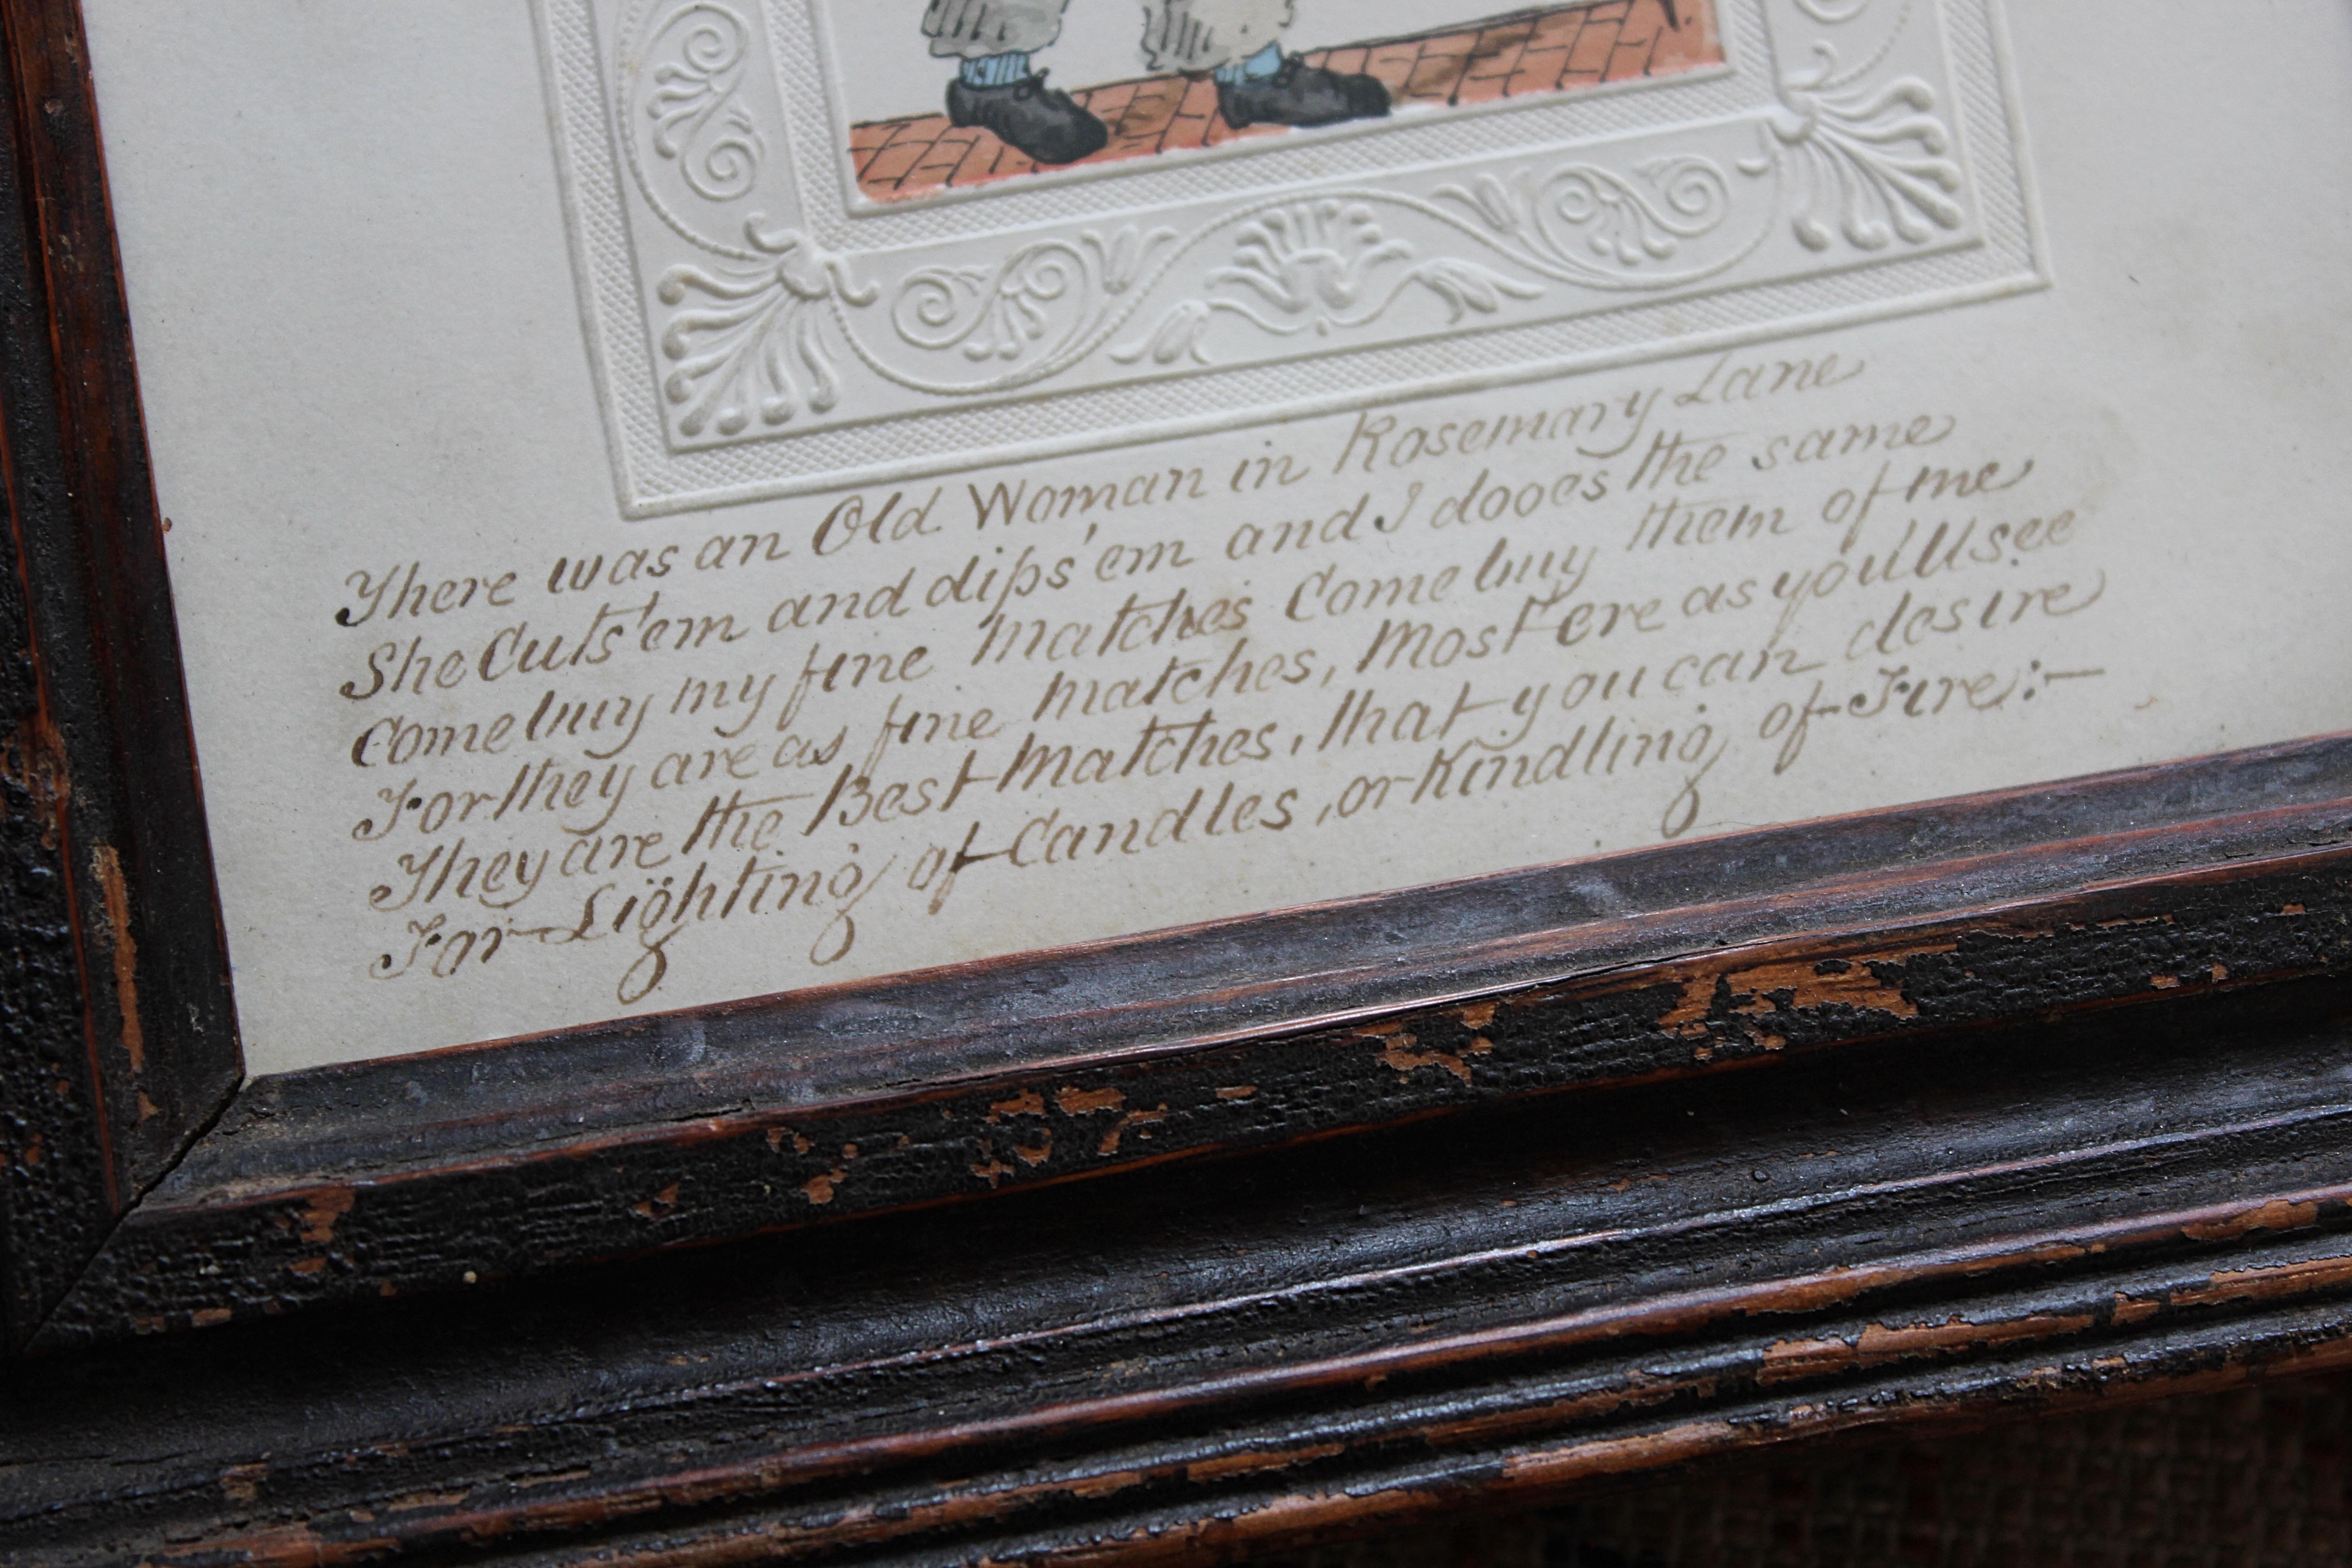 There was an Old Woman in Rosemary Lane
She Cuts 'em and dips 'em and I dooes the same
Come buy my fine Matches Come buy them of me
For they are as fine Matches, Most ere as you'll see
They are the Best Matches, that you can desire
For Lighting of Candles, or Kindling of Fire:—